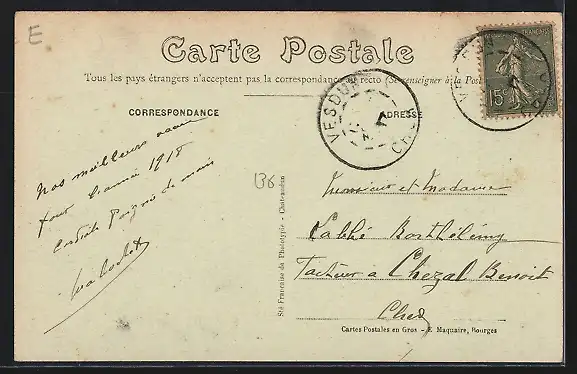 E
Carte Postale
Tous les pays étrangers n'acceptent pas la correspondance au recto (Se renseigner à la Post
CORRESPONDANCE
ADRESSE
VESDUN
CHER
FRANÇAISE
15c
Nos meilleurs vœux
pour l'année 1918
Cordiale Poignée de main
136
Monsieur et Madame
Labbé Barthélémy
Facteur à Chezal Benoit
Cher
Sté Française de Phototypie - Chateaudun
Cartes Postales en Gros - E. Maquaire, Bourges